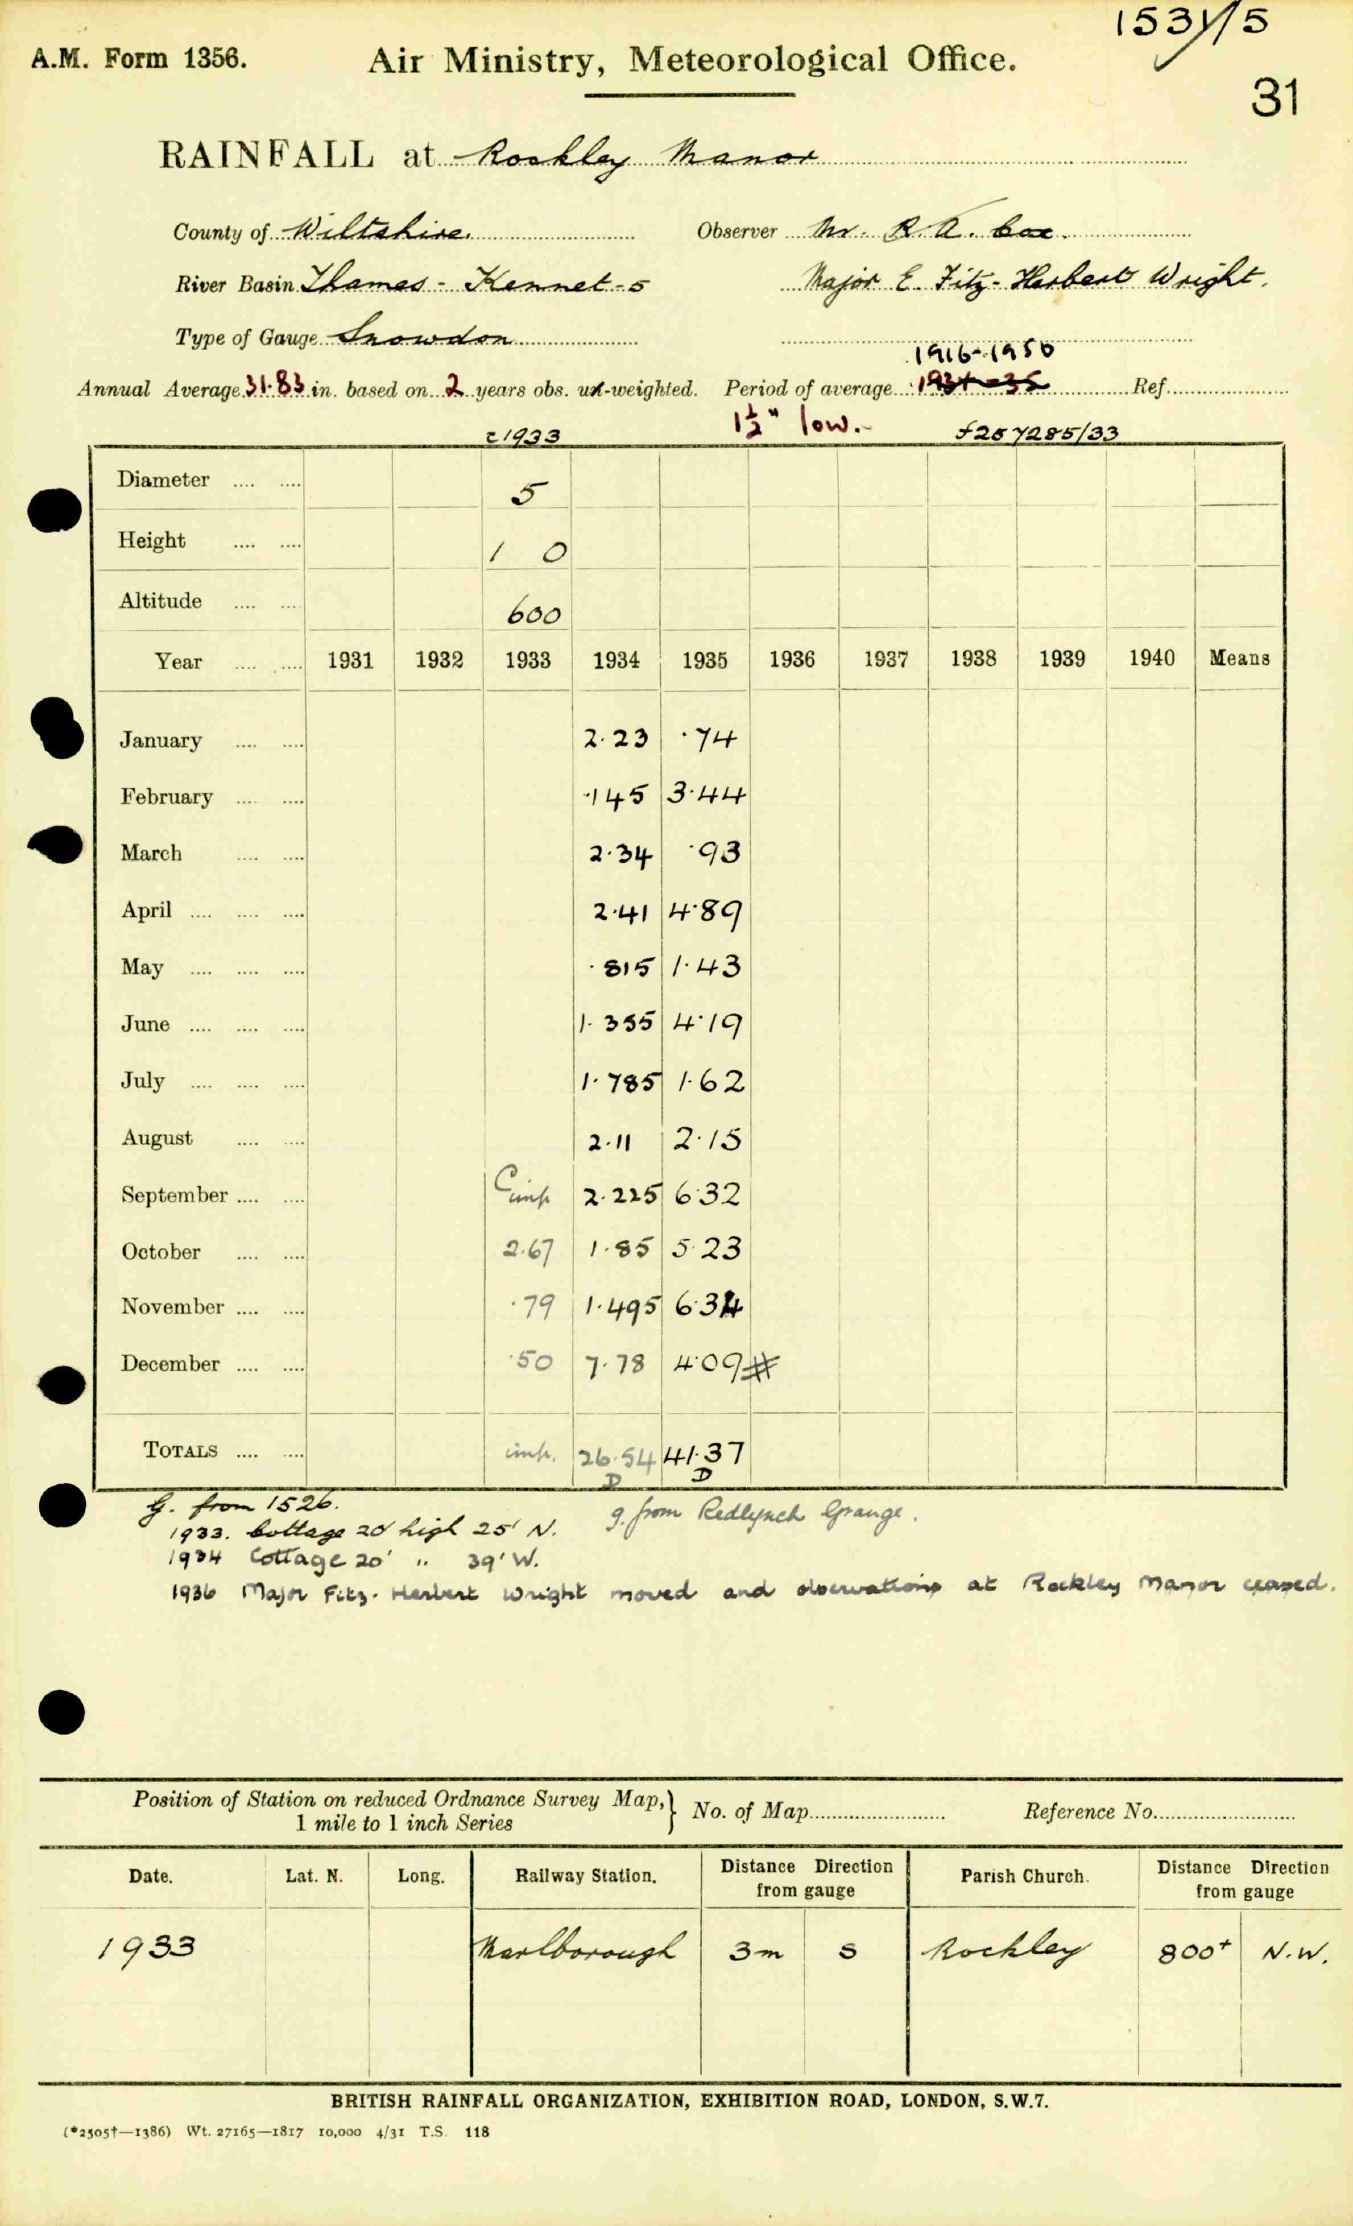 1531/5
A.M. Form 1356. Air Ministry, Meteorological Office.
31
RAINFALL at Rockley Manor
County of Wiltshire. Observer Mr. R. A. Cox.
River Basin Thames - Kennet - 5 Major E. Fitz-Herbert Wright.
Type of Gauge Snowdon
1916-1950
Annual Average 31.83 in. based on 2 years obs. un-weighted. Period of average 1934-35 Ref.
1½" low.
c1933 f257285/33
Diameter 5
Height 1 0
Altitude 600
Year 1931 1932 1933 1934 1935 1936 1937 1938 1939 1940 Means
January 2.23 .74
February .145 3.44
March 2.34 .93
April 2.41 4.89
May .815 1.43
June 1.355 4.19
July 1.785 1.62
August 2.11 2.15
September imp 2.225 6.32
October 2.67 1.85 5.23
November .79 1.495 6.34
December .50 7.78 4.09 #
TOTALS imp. 26.54 41.37
D D
G. from 1526. g. from Redlynch Grange.
1933. Cottage 20' high 25' N.
1934 Cottage 20' " 39' W.
1936 Major Fitz-Herbert Wright moved and observations at Rockley Manor ceased.
Position of Station on reduced Ordnance Survey Map, } No. of Map Reference No.
1 mile to 1 inch Series
Date. Lat. N. Long. Railway Station. Distance Direction from gauge Parish Church. Distance Direction from gauge
1933 Marlborough 3m S Rockley 800+ N.W.
BRITISH RAINFALL ORGANIZATION, EXHIBITION ROAD, LONDON, S.W.7.
(*2505†—1386) Wt. 27165—1817 10,000 4/31 T.S. 118